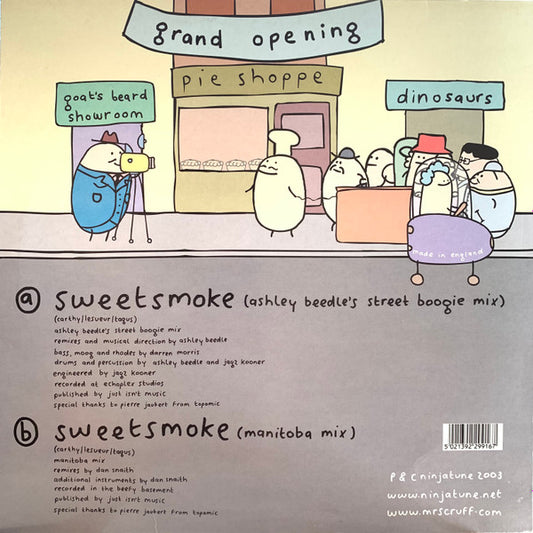 grand opening
pie shoppe
goat's beard
showroom
dinosaurs
made in england
a sweetsmoke (ashley beedle's street boogie mix)
(carthy/lesueur/tagus)
ashley beedle's street boogie mix
remixes and musical direction by ashley beedle
bass, moog and rhodes by darren morris
drums and percussion by ashley beedle and jagz kooner
engineered by jagz kooner
recorded at echaplex studios
published by just isn't music
special thanks to pierre jaubert from topomic
b sweetsmoke (manitoba mix)
(carthy/lesueur/tagus)
manitoba mix
remixes by dan snaith
additional instruments by dan snaith
recorded in the beefy basement
published by just isn't music
special thanks to pierre jaubert from topomic
5 021392 299167
P & C ninjatune 2003
www.ninjatune.net
www.mrscruff.com